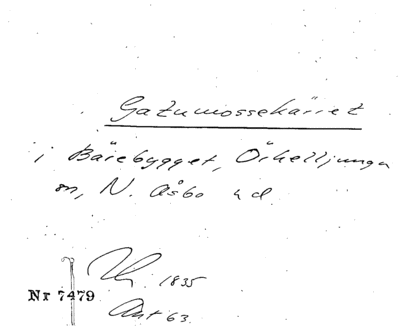 Gatumossekärret
i Bärebygget, Örkelljunga
sn, N. Åsbo hd.
1835
Nr 7479
Ant 63.